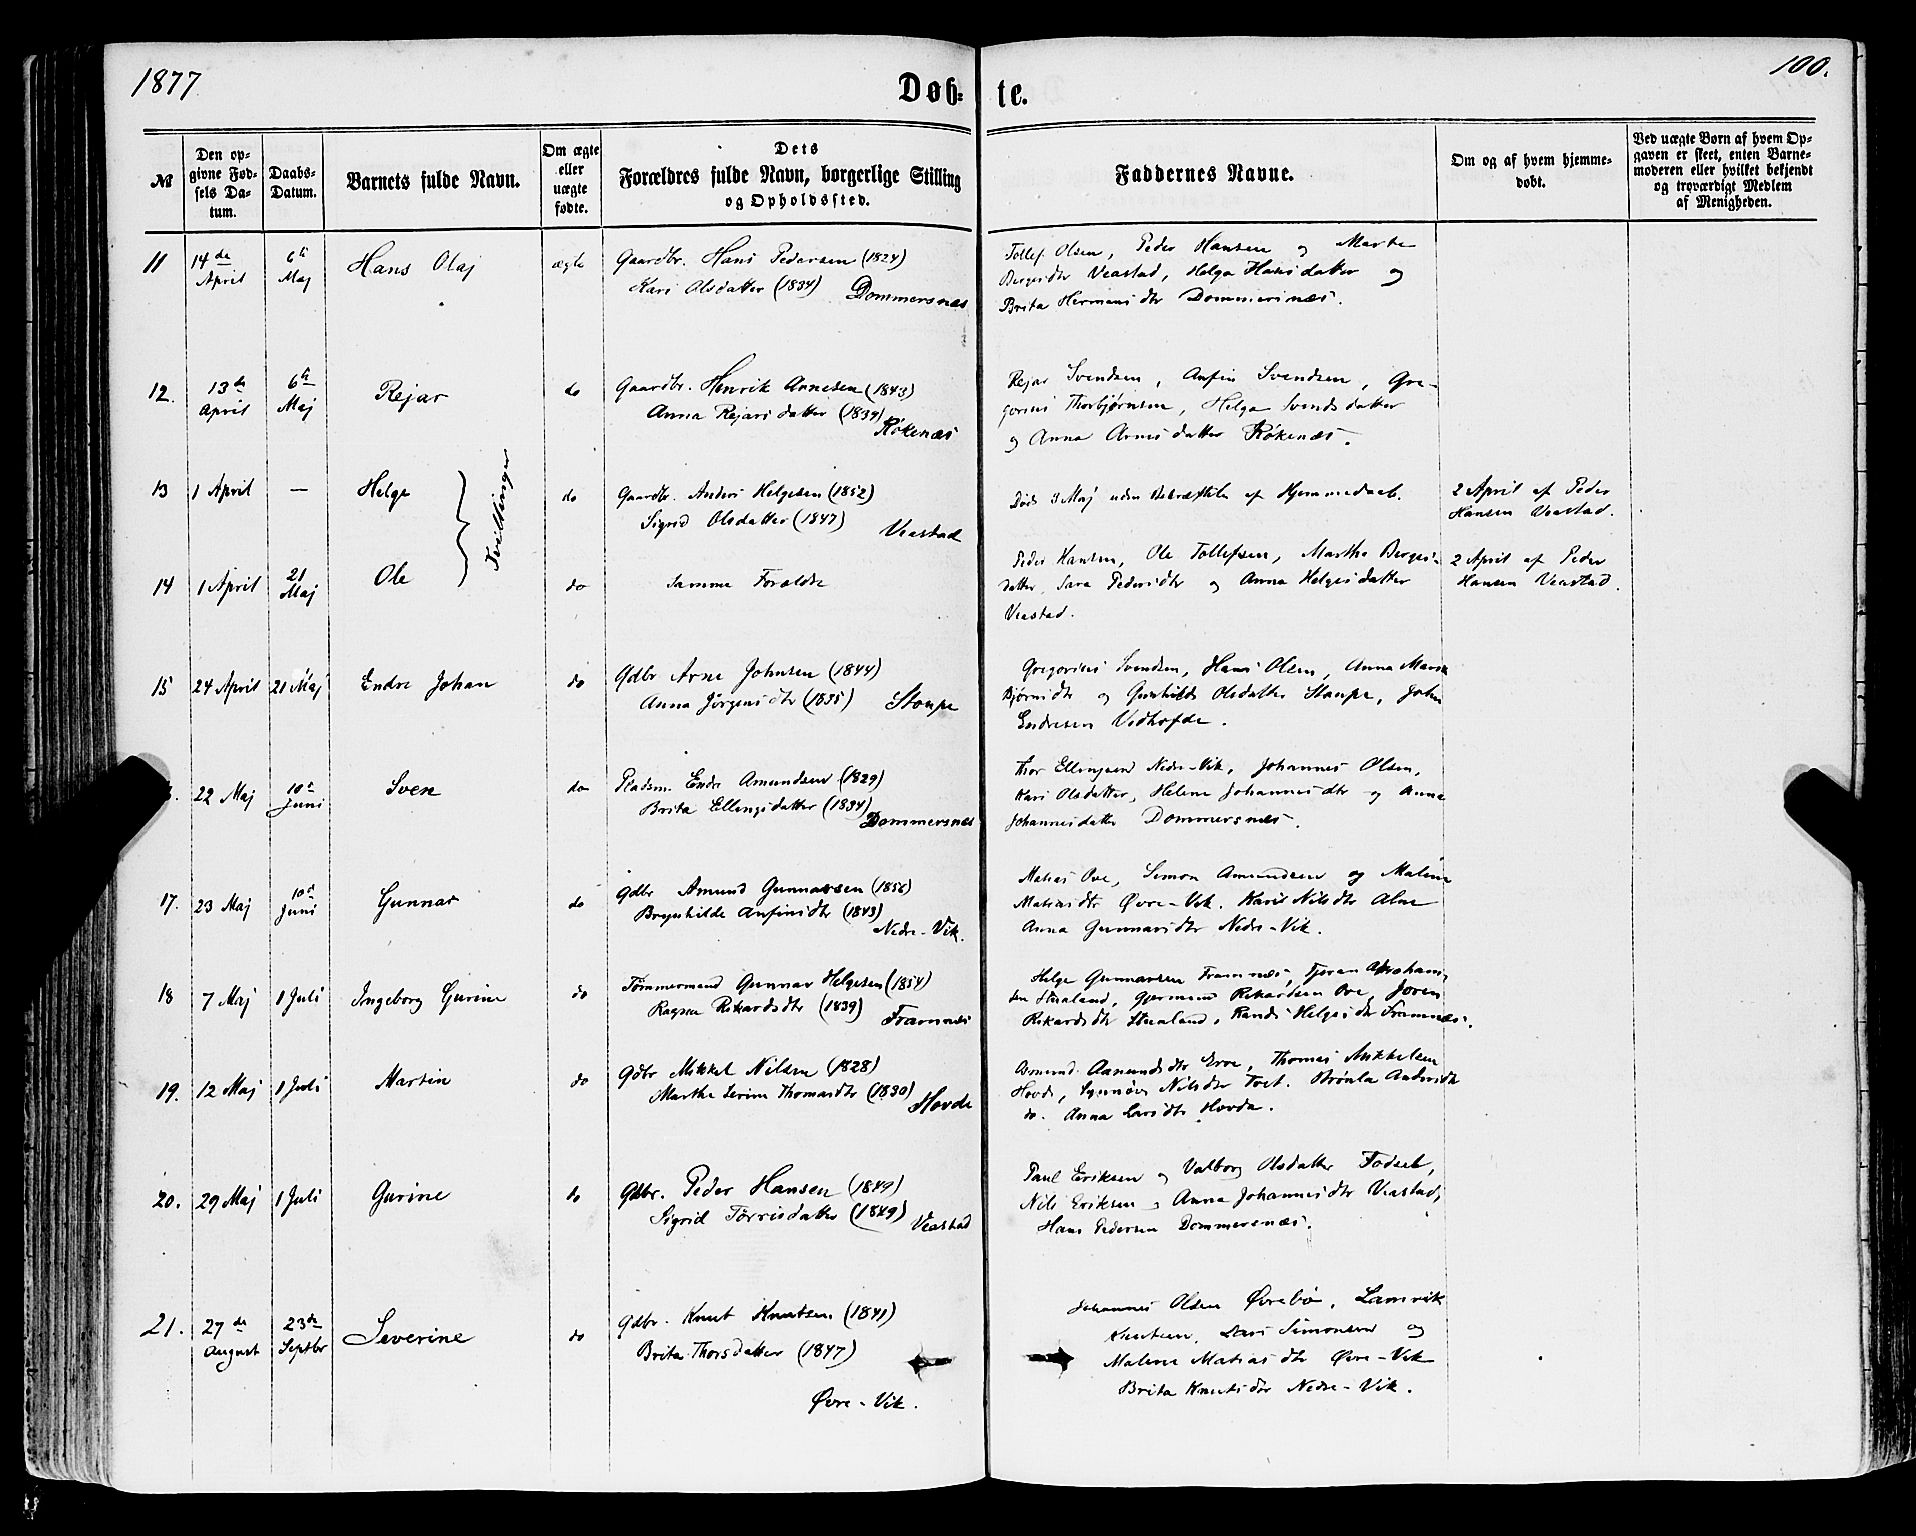 1877
Døb-
te.
100.
№
Den op-
givne Fød-
sels Da-
tum.
Daabs-
Datum.
Barnets fulde Navn.
Om ægte
eller
uægte
fødte.
Dets
Forældres fulde Navn, borgerlige Stilling
og Opholdssted.
Faddernes Navne.
Om og af hvem hjemme-
døbt.
Ved uægte Børn af hvem Op-
gaven er skeet, enten Barne-
moderen eller hvilket bekjendt
og troværdigt Medlem
af Menigheden.
11
14de
April
6te
Maj
Hans Olaj
ægte
Gaardbr. Hans Pedersen (1824)
Kari Olsdatter (1834) Dommersnæs
Tollef Olsen, Peder Hansen og Marte
Bergesdtr Veastad, Helga Hansdatter og
Brita Hermansdtr Dommersnæs.
12.
13de
April
6te
Maj
Rejar
do
Gaardbr. Henrik Arnesen (1843)
Anna Rejarsdatter (1839)
Røkenæs
Rejar Svendsen, Anfin Svendsen, Gre-
gorius Thorbjørnsen, Helga Svendsdatter
og Anna Arnesdatter Røkenæs.
13
1 April
—
Helge
Tvillinger
do
Gaardbr. Anders Helgesen (1852)
Sigrid Olsdatter (1847)
Veastad
Død 3 Maj uden Bekræftelse af Hjemmedaab.
2 April af Peder
Hansen Veastad.
14
1 April
21
Maj
Ole
do
Samme Forældre
Peder Hansen, Ole Tollefsen, Martha Berges-
datter, Sara Pedersdtr og Anna Helgesdatter
Veastad.
2 April af Peder
Hansen Veastad.
15
24 April
21 Maj
Endre Johan
do
Gdbr Arne Johnsen (1844)
Anna Jørgensdtr (1835) Staupe
Gregorius Svendsen, Hans Olsen, Anna Maria
Bjørnsdtr og Gunhilde Olsdatter Staupe, John
Endresen Vedhofde.
22 Maj
10de
Juni
Sven
do
Pladsm. Endr Amundsen (1829)
Brita Ellingsdatter (1834)
Dommersnæs
Thor Ellingsen Nedre-Vik, Johannes Olsen,
Kari Olsdatter, Helene Johannesdtr og Anna
Johannesdatter Dommersnæs.
17.
23 Maj
10de
Juni
Gunnar
do
Gdbr Amund Gunnarsen (1856)
Brynhilde Anfinsdtr (1843)
Nedre-Vik.
Matias Ove, Simon Amundsen og Malene
Matiasdtr Øvre-Vik. Kari Nilsdtr Alne
Anna Gunnarsdtr Nedre-Vik.
18
7 Maj
1 Juli
Ingeborg Gurine
do
Tømmermand Gunnar Helgesen (1854)
Ragna Rikardsdtr (1839)
Framnæs
Helge Gunnarsen Framnæs, Tjeran Abraham-
sen Stualand, Gjermund Rikardsen Ove, Joren
Rikardsdtr Stualand, Randi Helgesdtr Framnæs.
19.
12 Maj
1 Juli
Martin
do
Gdbr Mikkel Nilsen (1828)
Marthe Serine Thomasdtr (1830)
Hovde
Asmund Aamundsdtr Erve, Thomas Mikkelsen
Hovde, Synnøve Nilsdtr Tvet. Brønla Andersdtr
do. Anna Larsdtr Hovda.
20.
29 Maj
1 Juli
Gurine
do
Gdbr. Peder Hansen (1849)
Sigrid Tørrisdatter (1849) Veastad
Paul Eriksen og Valborg Olsdatter Fodset,
Nils Eriksen og Anna Johannesdtr Veastad,
Hans Pedersen Dommersnæs.
21.
27de
August
23de
Septbr
Severine
do
Gdbr. Knut Knutsen (1841)
Brita Thorsdatter (1847)
Øvre-Vik.
Johannes Olsen Øvrebø, Lamvik
Knutsen, Lars Simonsen og
Malene Matiasdtr Øvre-Vik
Brita Knutsdtr Nedre-Vik.